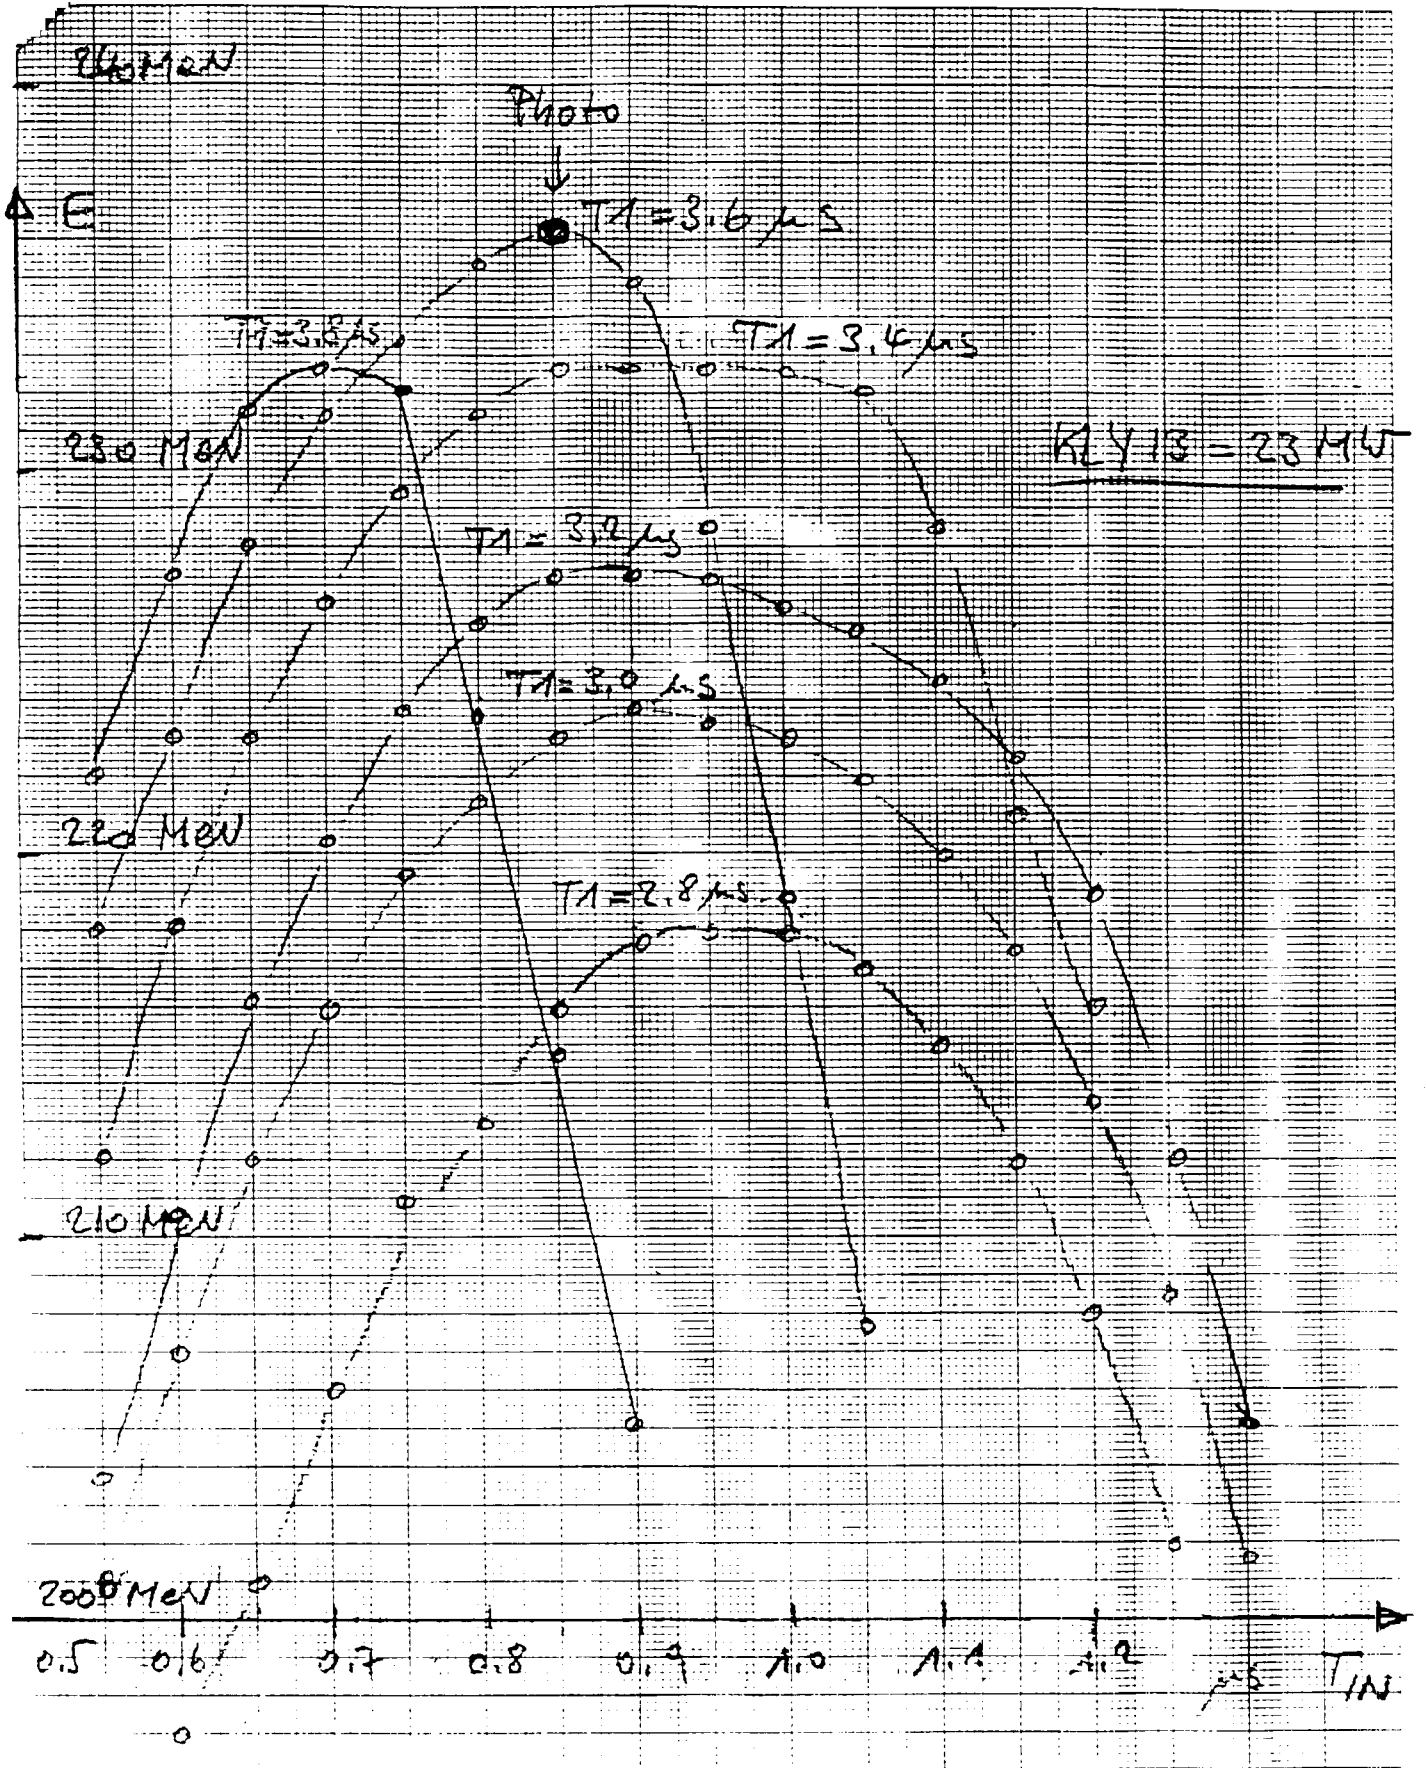 240 MeV
Photo
E
T1 = 3.6 µs
T1 = 3.8 µs
T1 = 3.4 µs
230 MeV
KLY 13 = 23 MW
T1 = 3.2 µs
T1 = 3.0 µs
220 MeV
T1 = 2.8 µs
210 MeV
200 MeV
0.5 0.6 0.7 0.8 0.9 1.0 1.1 1.2 µs TIN